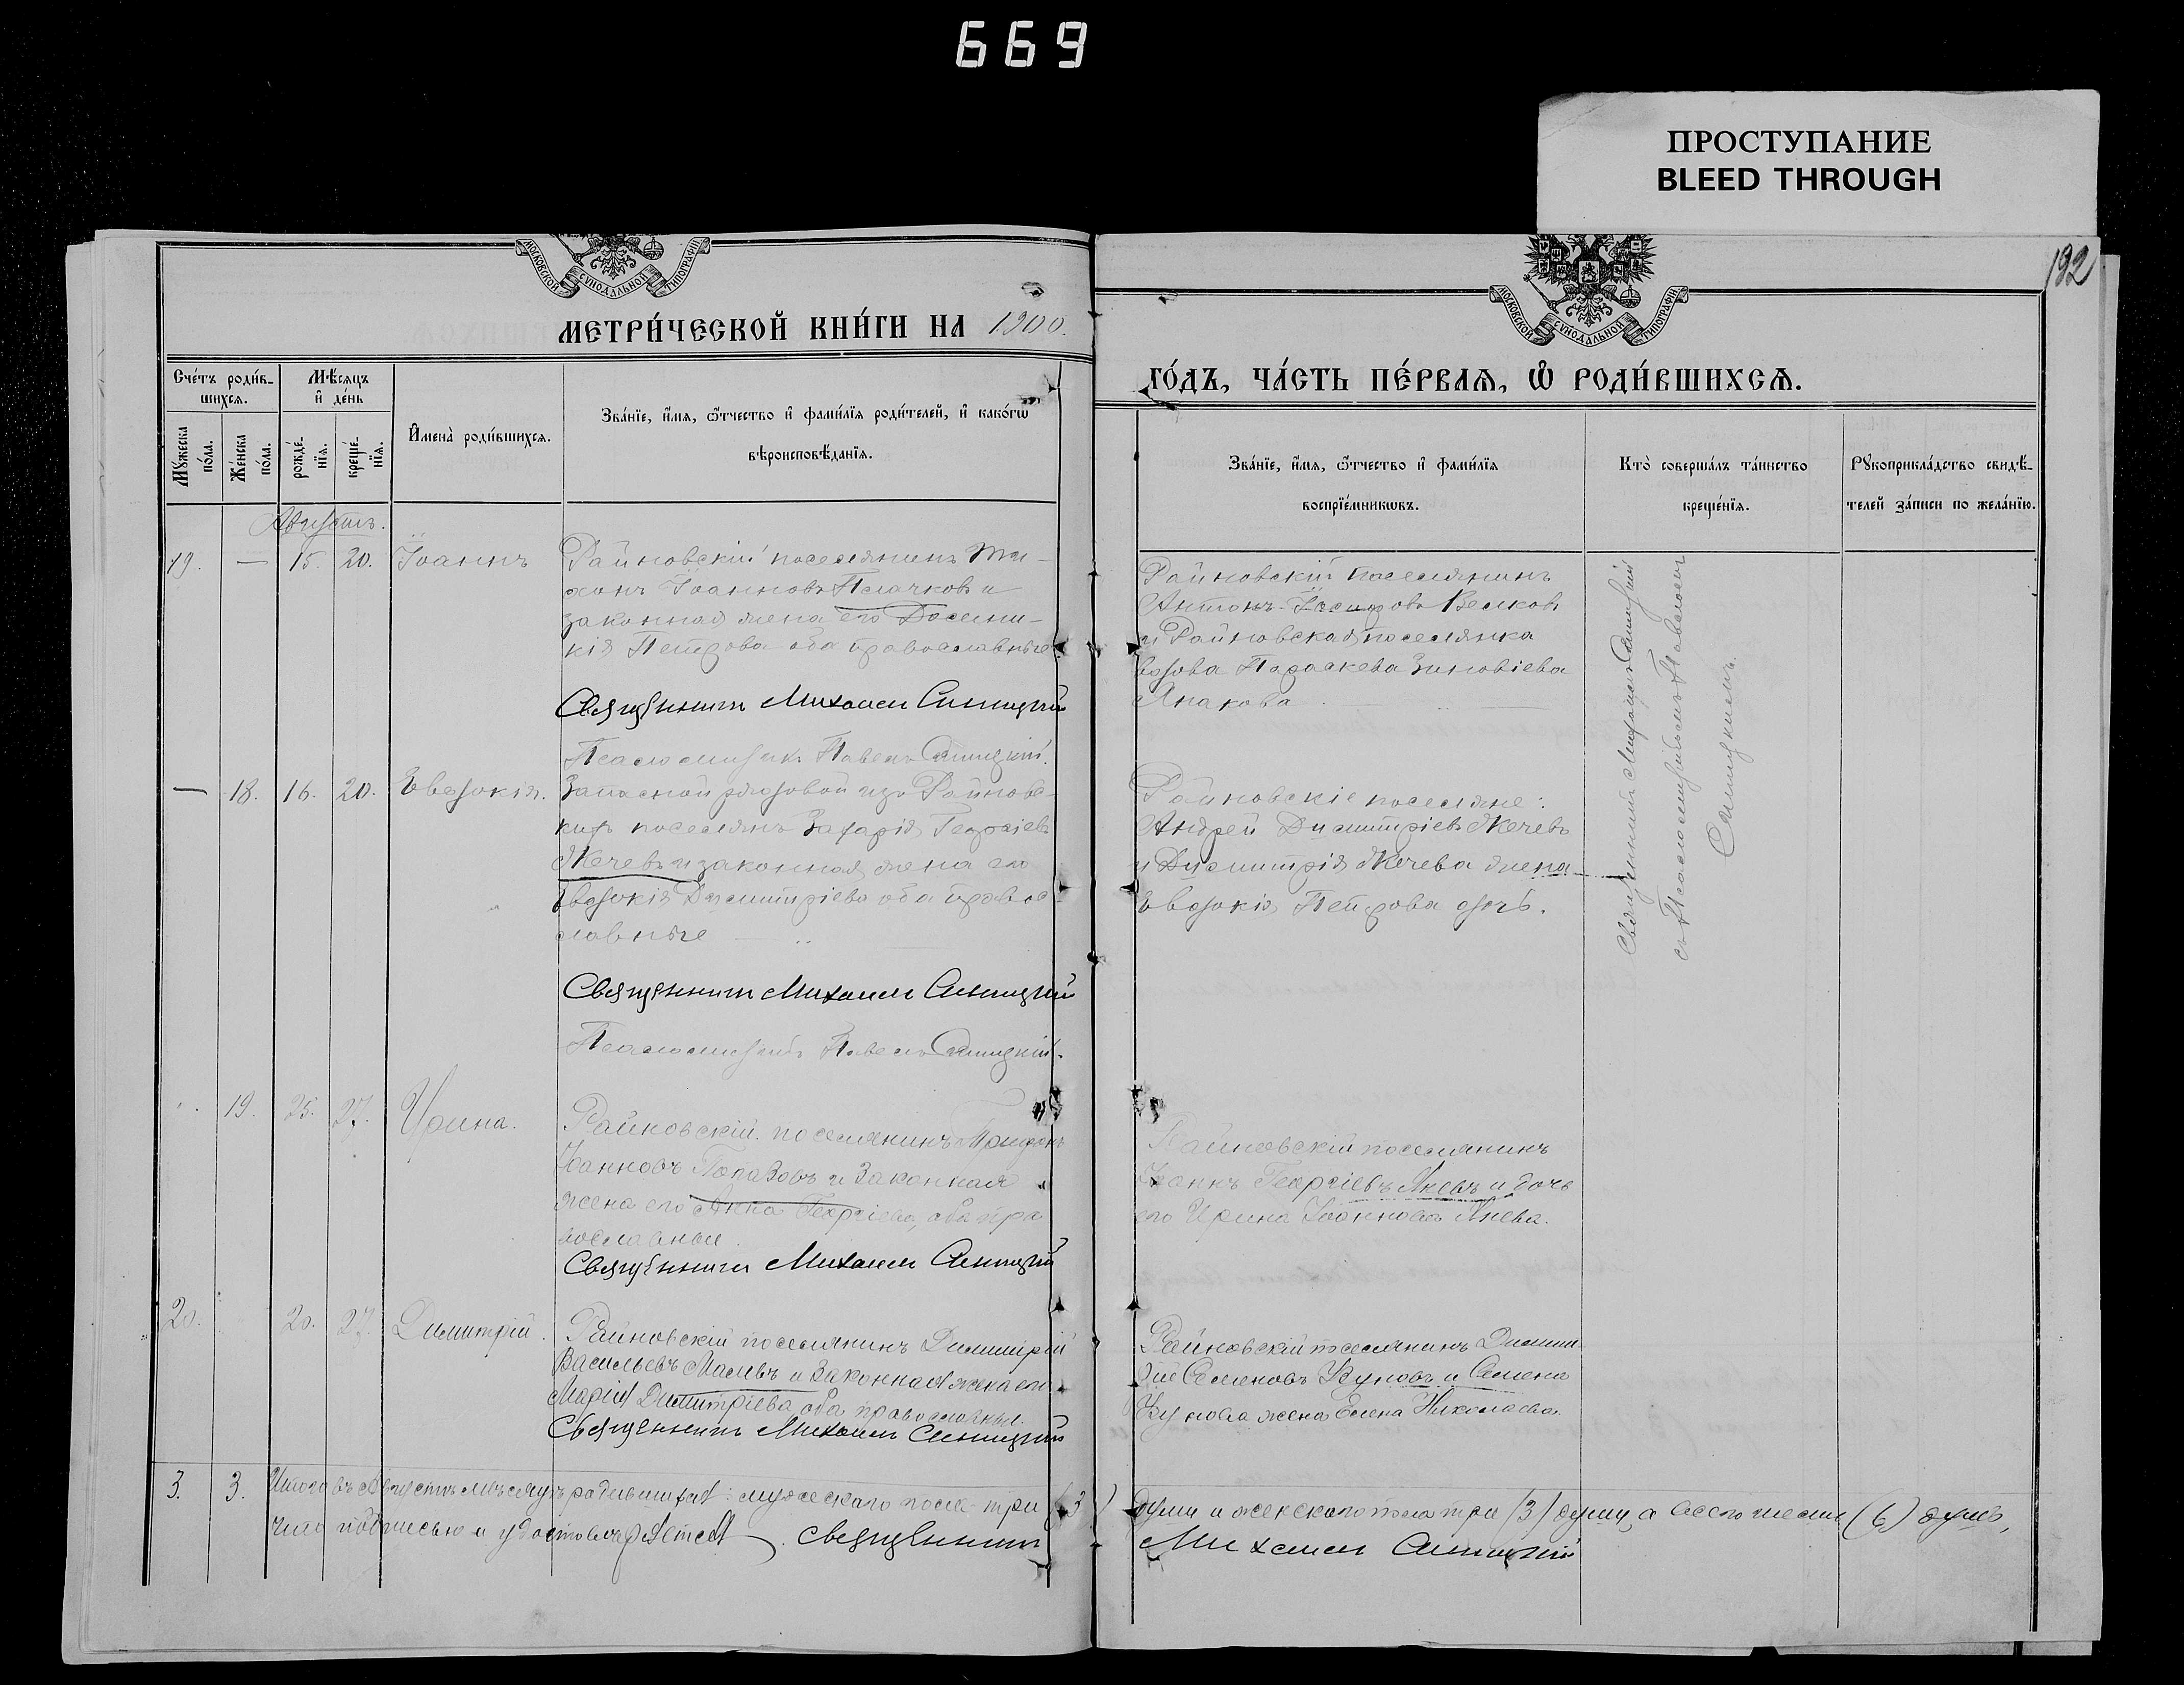 669
ПРОСТУПАНИЕ
BLEED THROUGH
192
МОСКОВСКОЙ СѴНОДАЛЬНОЙ ТИПОГРАФІИ
МОСКОВСКОЙ СѴНОДАЛЬНОЙ ТИПОГРАФІИ
МЕТРИ́ЧЕСКОЙ КНИ́ГИ НА 1900.
ГО́ДЪ, ЧА́СТЬ ПЕ́РВАЯ, Ѡ҆ РОДИ́ВШИХСЯ.
Сче́тъ роди́в-
шихся.
Мѣ́сяцъ
и҆ де́нь
Мꙋ́жеска
по́ла.
Же́нска
по́ла.
рожде́-
нїя.
креще́-
нїя.
И҆мена̀ роди́вшихся.
Зва́нїе, и҆́мя, ѻ҆́тчество и҆ фами́лїя роди́телей, и҆ како́гѡ
вѣроисповѣ́данїя.
Зва́нїе, и҆́мя, ѻ҆́тчество и҆ фами́лїя
воспрїе́мникѡвъ.
Кто̀ соверша́лъ та́инство
креще́нїя.
Рꙋкоприкла́дство свидѣ́-
телей за́писи по жела́нїю.
Августъ.
19. — 15. 20. Іоаннъ
Райновскій поселянинъ Ти-
хонъ Іоанновъ и
законная жена его Досеми-
кія Петрова оба православные
Священникъ Михаилъ Синицкій
Псаломщикъ Павелъ Синицкій.
Райновскій поселянинъ
Антонъ Велковъ
и Райновская поселянка
вдова Параскева Зиновіева
Янакова
Священникъ Михаилъ Синицкій
съ Псаломщикомъ Павломъ
Синицкимъ.
— 18. 16. 20. Евдокія.
Запасной рядовой изъ Райновс-
кихъ поселянъ Захарія Георгіевъ
Жечевъ и законная жена его
Евдокія Димитріева оба правос-
лавные
Священникъ Михаилъ Синицкій
Псаломщикъ Павелъ Синицкій.
Райновскіе поселяне:
Андрей Димитріевъ Жечевъ
и Димитрія Жечева жена
Евдокія Петрова
19. 25. 27. Ирина.
Райновскій поселянинъ Трифонъ
Іоанновъ и законная
жена его Анна Георгіева, оба пра
вославные
Священникъ Михаилъ Синицкій
Райновскій поселянинъ
Іоаннъ Георгіевъ Яневъ и дочь
его Ирина Іоаннова Янева.
20. 20. 27. Димитрій.
Райновскій поселянинъ Димитрій
Васильевъ и законная жена его
Марія Димитріева, оба православные.
Священникъ Михаилъ Синицкій
Райновскій поселянинъ Димит
рій Семеновъ и Семена
жена Елена Николаева.
3. 3. Итого въ Августѣ мѣсяцѣ родившихся: мужескаго пола три (3) души и женскаго пола три (3) души, а всего шесть (6) душъ,
подписью и удостовѣряется Священникъ Михаилъ Синицкій